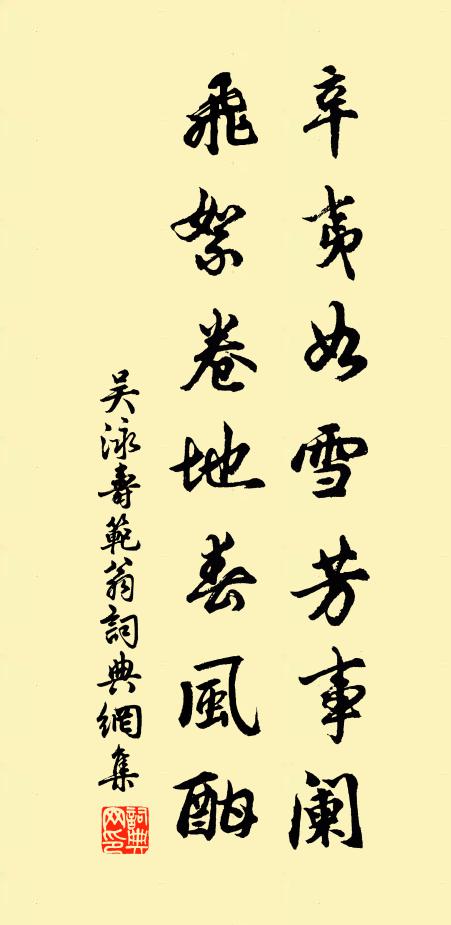 辛夷如雪芳事阑
飛絮卷地春風酣
吴泳壽範翁詞典網集
詞典网印